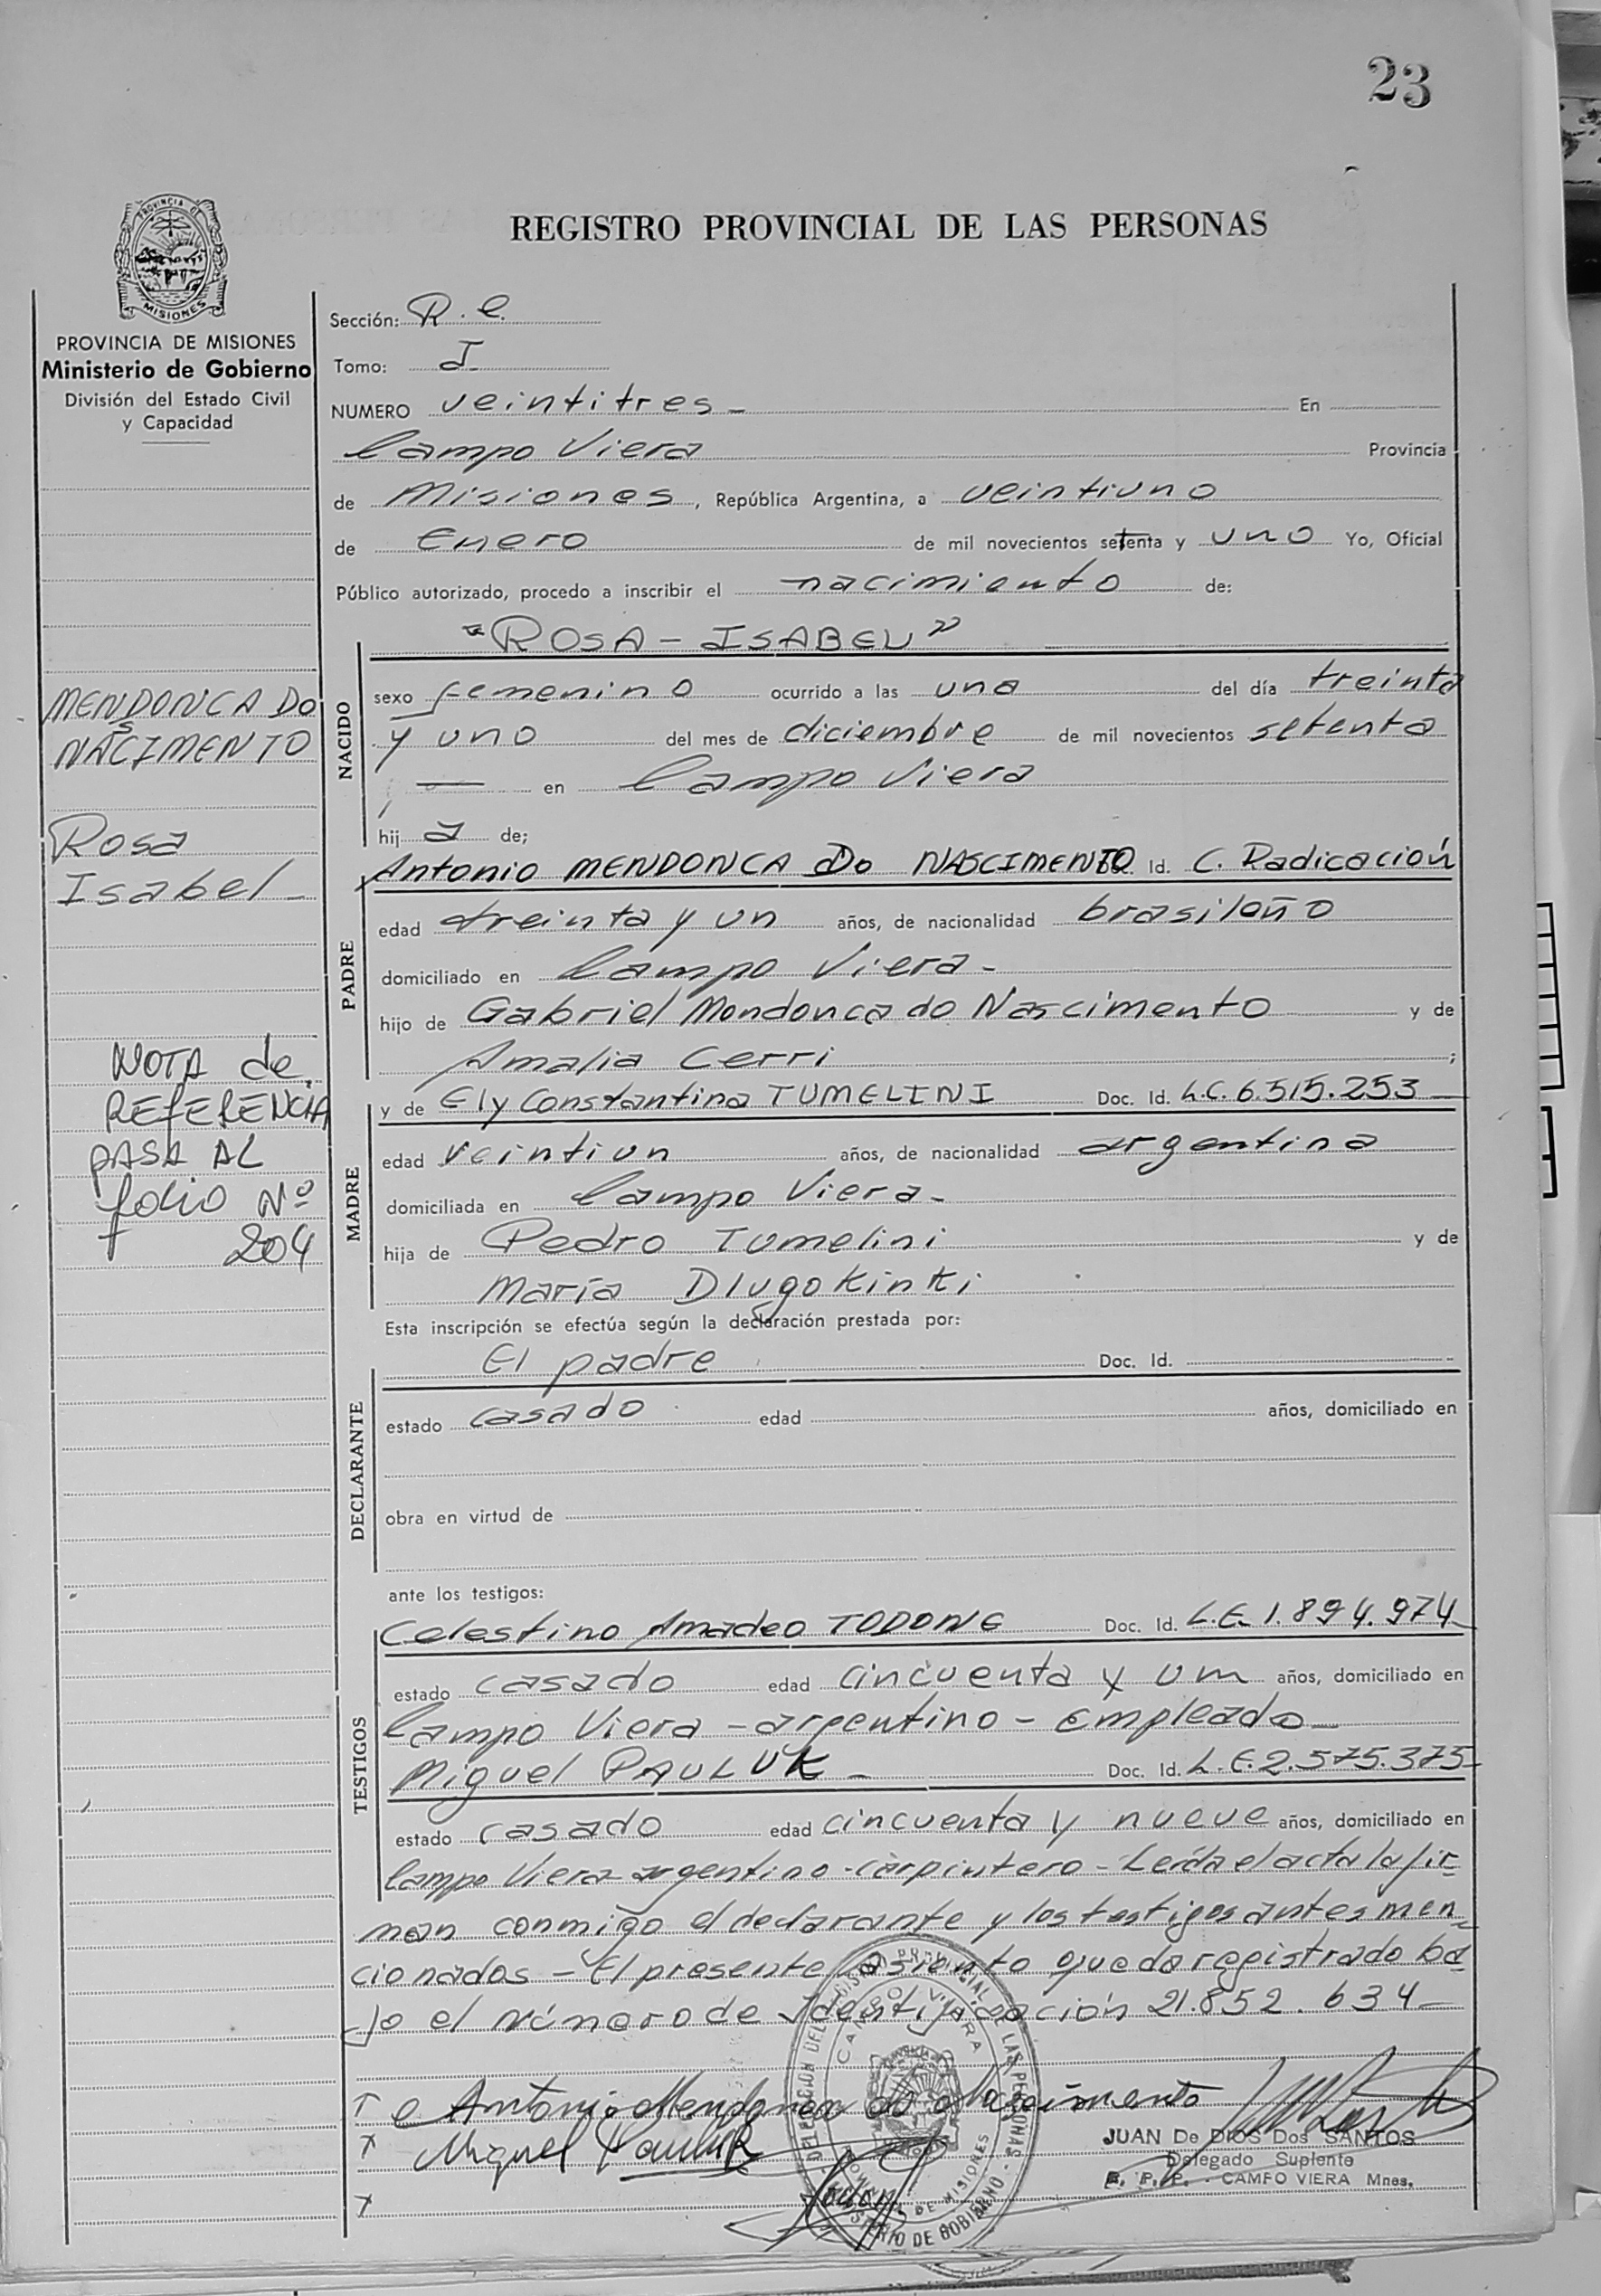 23
REGISTRO PROVINCIAL DE LAS PERSONAS
PROVINCIA DE
MISIONES
PROVINCIA DE MISIONES
Ministerio de Gobierno
División del Estado Civil
y Capacidad
MENDONCA DO
NASCIMENTO
Rosa
Isabel -
NOTA de
REFERENCIA
PASA AL
folio Nº
204
Sección: R. C.
Tomo: I
NUMERO veintitres - En
Campo Viera Provincia
de Misiones, República Argentina, a veintiuno
de Enero de mil novecientos setenta y uno Yo, Oficial
Público autorizado, procedo a inscribir el nacimiento de:
"ROSA - ISABEL"
NACIDO
sexo femenino ocurrido a las una del día treinta
y uno del mes de diciembre de mil novecientos setenta
— en Campo Viera
hij a de;
PADRE
Antonio MENDONCA DO NASCIMENTO Id. C. Radicación
edad treinta y un años, de nacionalidad brasileño
domiciliado en Campo Viera -
hijo de Gabriel Mendonca do Nascimento y de
Amalia Cerri ;
MADRE
y de Ely Constantina TUMELINI Doc. Id. L.C. 6.515.253
edad veintiun años, de nacionalidad argentina
domiciliada en Campo Viera -
hija de Pedro Tumelini y de
María Dlugokinki
Esta inscripción se efectúa según la declaración prestada por:
DECLARANTE
El padre Doc. Id.
estado casado edad años, domiciliado en
obra en virtud de
ante los testigos:
TESTIGOS
Celestino Amadeo TODONE Doc. Id. L.E. 1.894.974
estado casado edad cincuenta y un años, domiciliado en
Campo Viera - argentino - Empleado -
Miguel PAULUK - Doc. Id. L.E. 2.575.375
estado casado edad cincuenta y nueve años, domiciliado en
Campo Viera - argentino - carpintero - Leída el acta la fir-
man conmigo el declarante y los testigos antes men-
cionados - El presente asiento queda registrado ba-
jo el número de Identificación 21.852.634 -
Antonio Mendonca do Nascimento
Miguel Pauluk
JUAN De DIOS Dos SANTOS
Delegado Suplente
R. P. P. - CAMPO VIERA Mnes.
CAMPO VIERA
MINISTERIO DE GOBIERNO